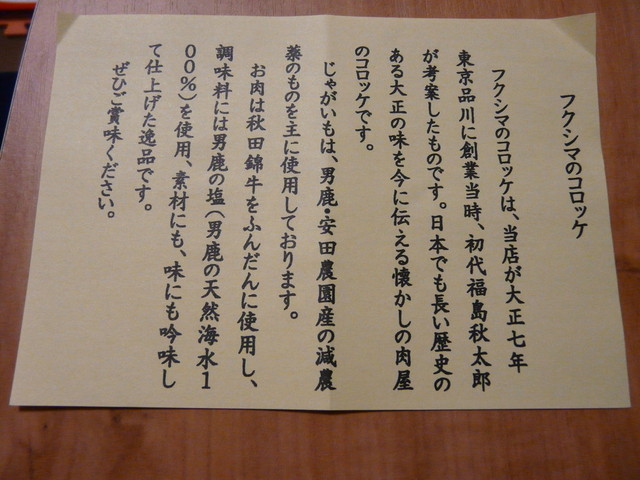 フクシマのコロッケ
フクシマのコロッケは、当店が大正七年
東京品川に創業当時、初代福島秋太郎
が考案したものです。日本でも長い歴史の
ある大正の味を今に伝える懐かしの肉屋
のコロッケです。
じゃがいもは、男鹿・安田農園産の減農
薬のものを主に使用しております。
お肉は秋田錦牛をふんだんに使用し、
調味料には男鹿の塩(男鹿の天然海水1
00%)を使用、素材にも、味にも吟味し
て仕上げた逸品です。
ぜひご賞味ください。